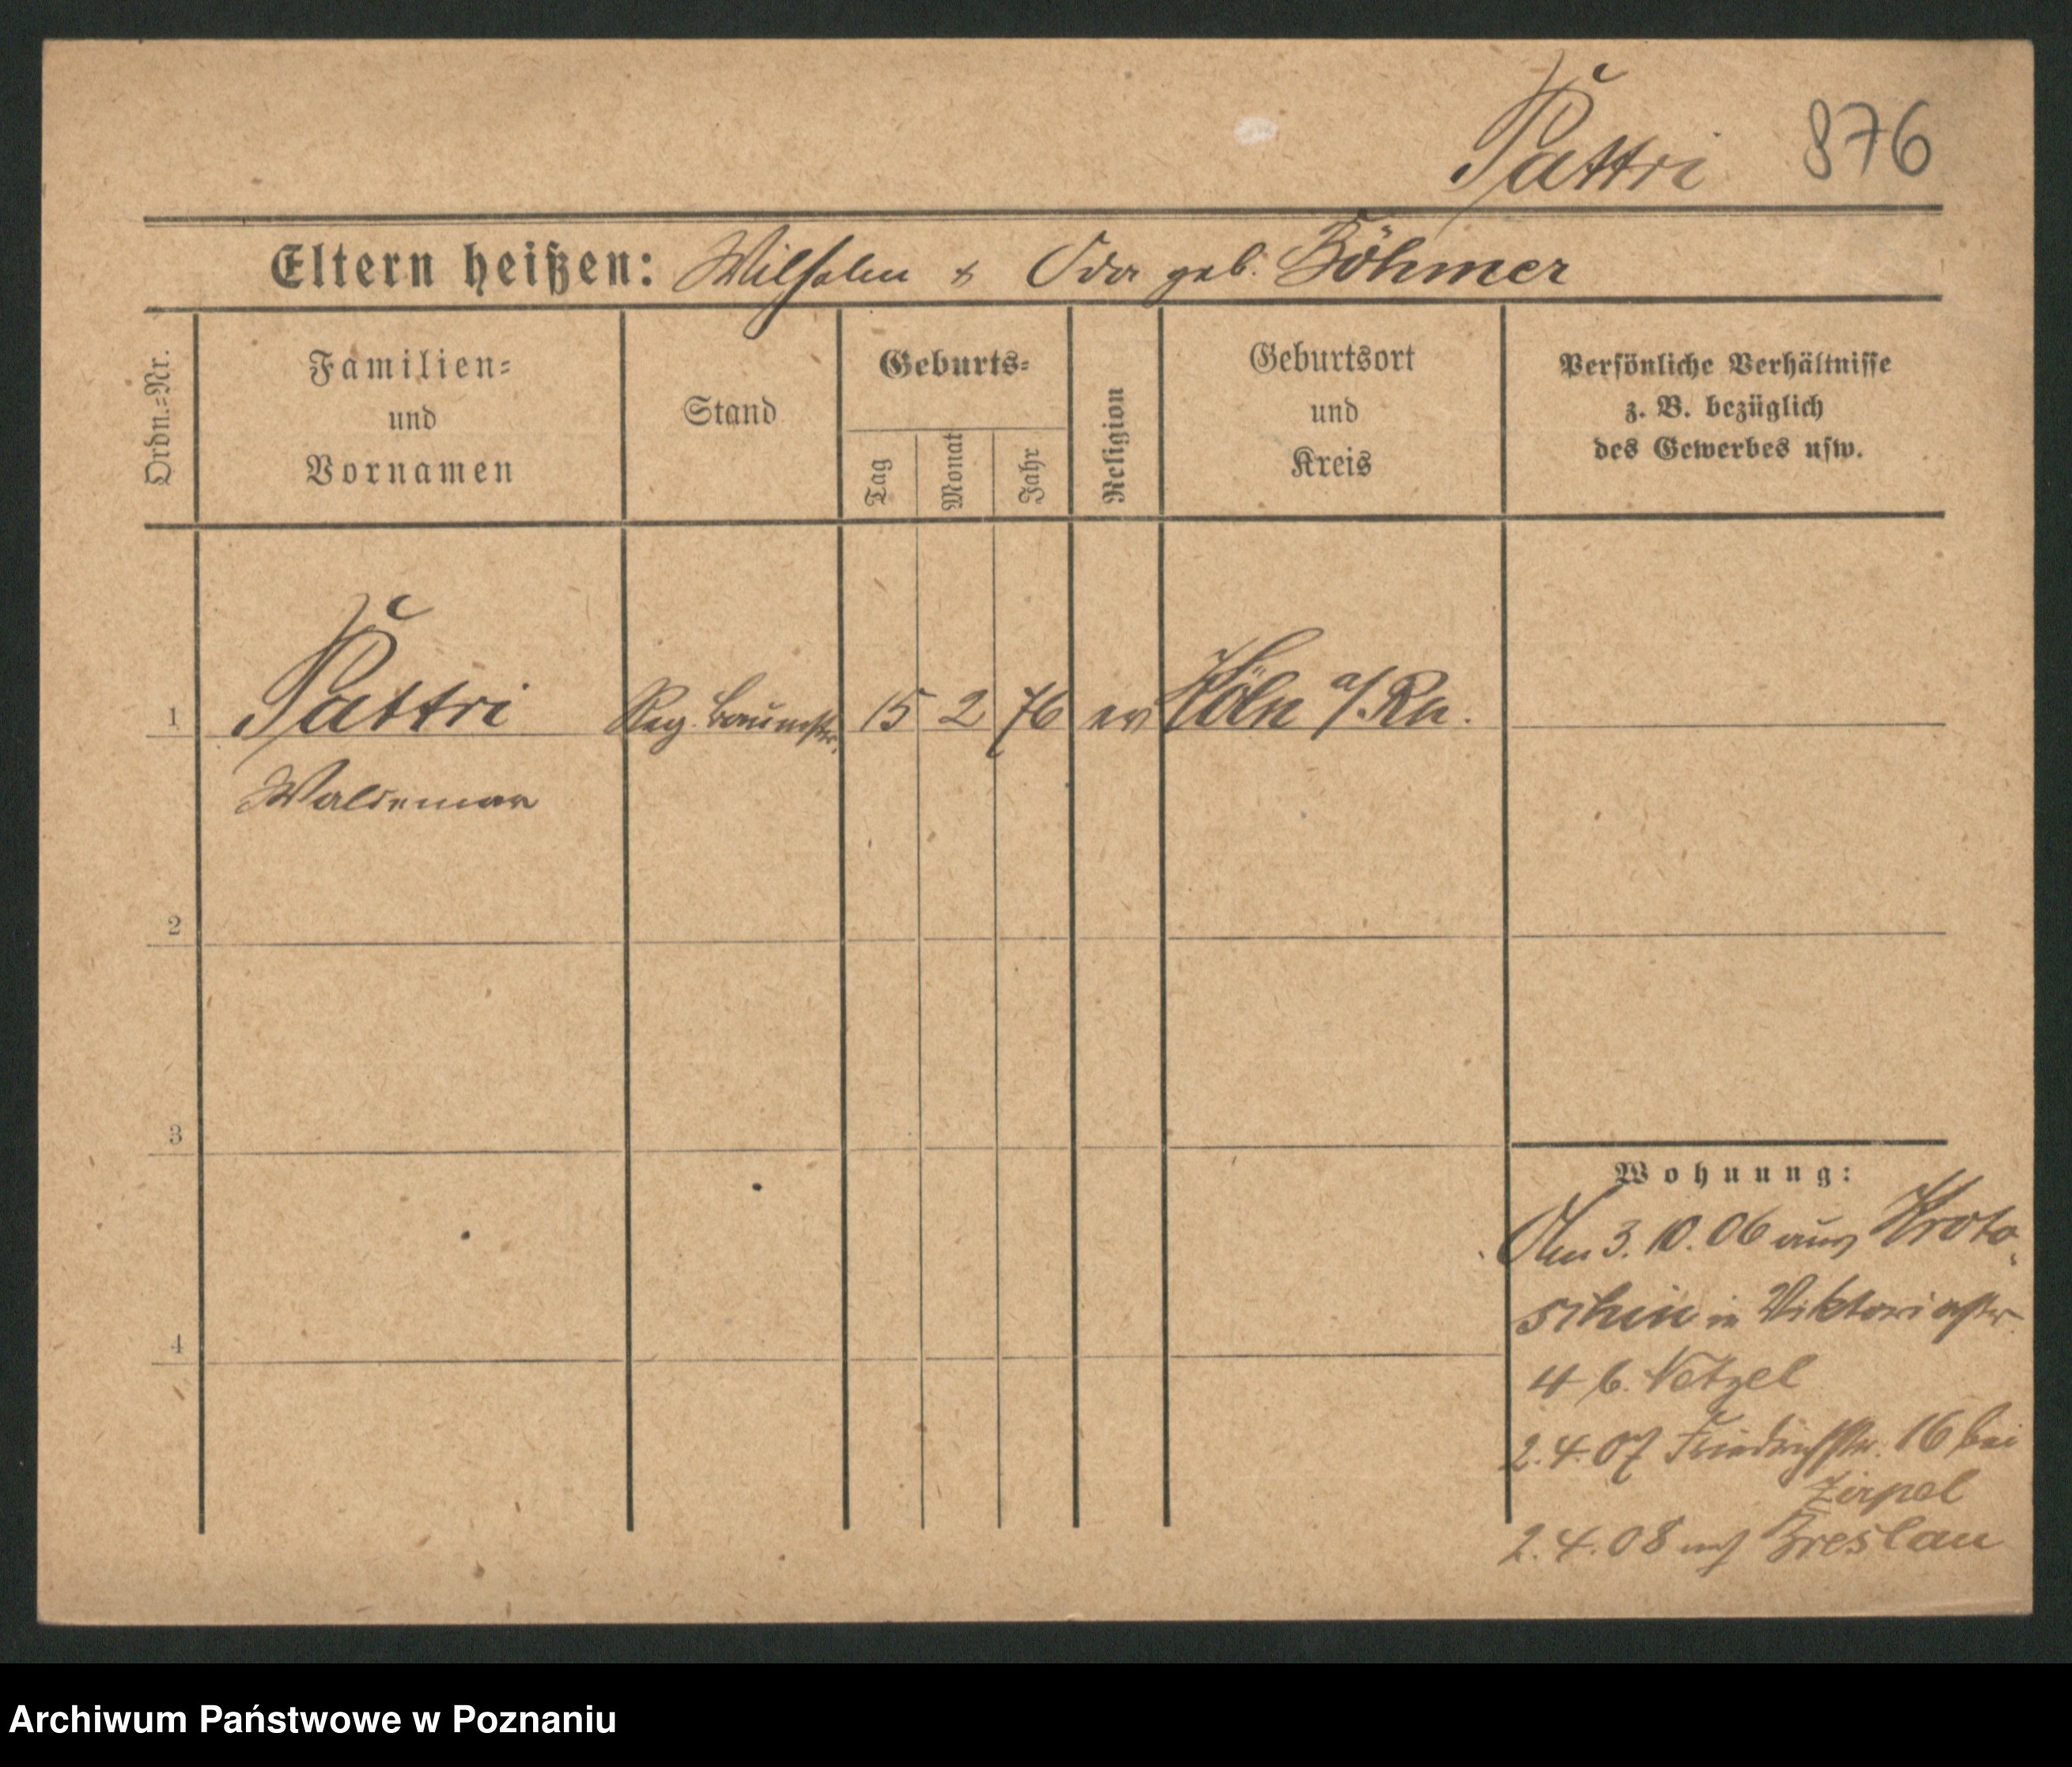 Pattri 876
Eltern heißen: Wilhelm & Oda geb. Böhmer
Ordn.=Nr.
Familien=
und
Vornamen
Stand
Geburts=
Tag
Monat
Jahr
Religion
Geburtsort
und
Kreis
Persönliche Verhältnisse
z. B. bezüglich
des Gewerbes usw.
1 Pattri Reg. Baumstr. 15 2 76 ev Köln a/Rh.
Waldemar
2
3
4
Wohnung:
Am 3. 10. 06 aus Kroto
schin in Viktoriastr.
4 b. Netzel
2.4.07 Friedrichstr. 16 bei
Zirpel
2.4.08 nach Breslau
Archiwum Państwowe w Poznaniu